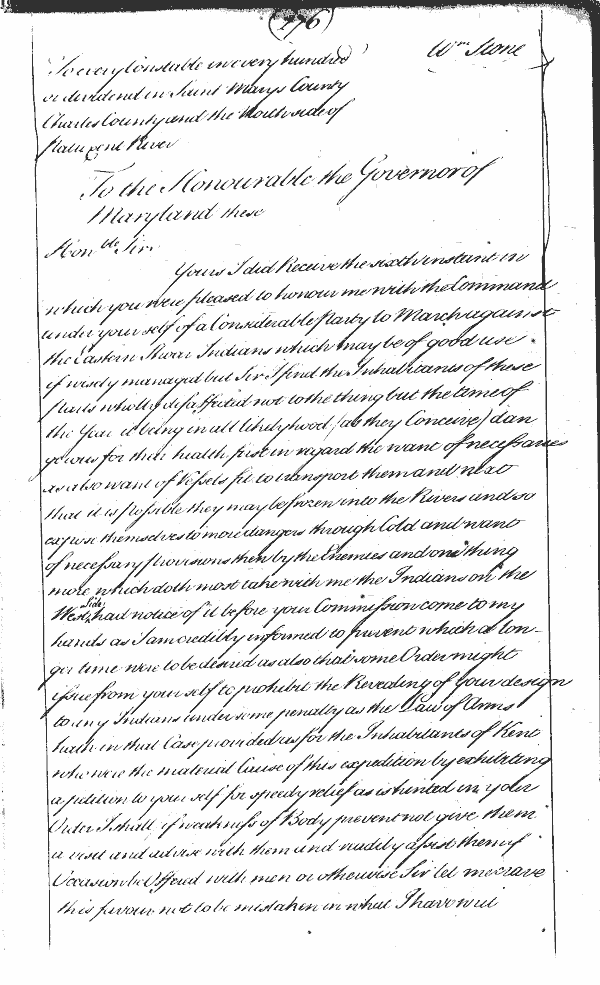 (276)
Wm Stone
To every Constable in every hundred
or dividend in Saint Marys County
Charles County and the North side of
Patuxent River
To the Honourable the Governor of
Maryland these
Honble Sir.
Yours I did Receive the sixth instant in
which you were pleased to honour me with the Command
under your self of a Considerable Party to March against
the Eastern Shoar Indians which may be of good use
if wisely managed but Sir I find the Inhabitants of these
parts wholly disaffected not to the thing but the time of
the Year it being in all likelyhood (as they Conceive) dan
gerous for their health first in regard the want of necessaries
as also want of Vessels fit to transport them and next
that it is possible they may be frozen into the Rivers and so
expose themselves to more dangers through Cold and want
of necessary provisions then by the Enemies and one thing
more which doth most take with me the Indians on the
West Side had notice of it before your Commission come to my
hands as I am credibly informed to prevent which a lon-
ger time were to be desired as also that some Order might
issue from your self to prohibit the Revealing of your design
to any Indians under some penalty as the Law of Arms
hath in that Case provided as for the Inhabitants of Kent
who were the material Cause of this expedition by exhibiting
a petition to your self for speedy relief as is hinted in your
Order I shall if weakness of Body prevent not give them
a visit and advise with them and readily assist them if
Occasion be Offered with men or otherwise Sir let me crave
this favour not to be mistaken in what I have writ